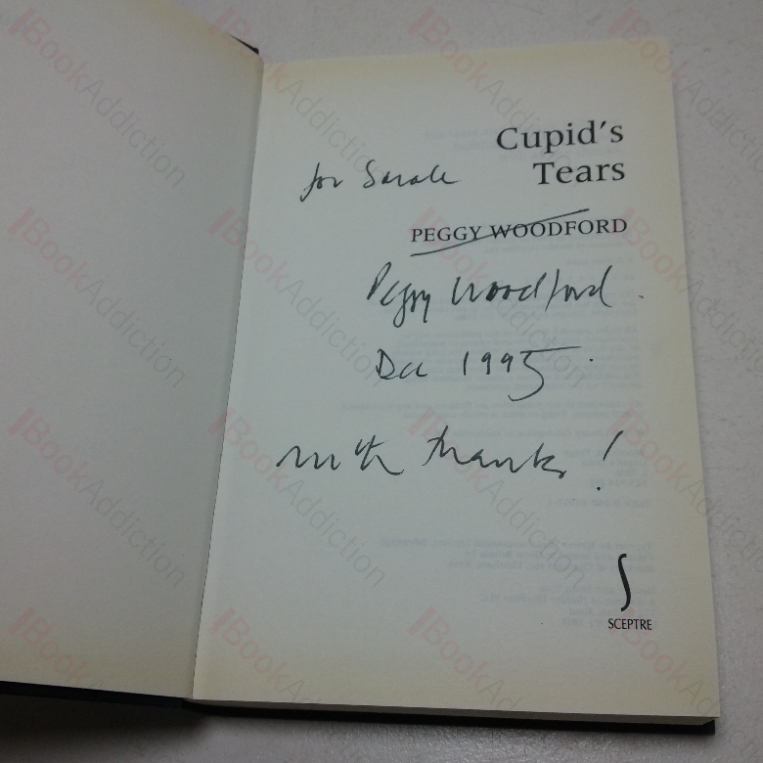 Cupid's
Tears
for Sarah
PEGGY WOODFORD
Peggy Woodford
Dec 1995
with thanks!
SCEPTRE
BookAddiction